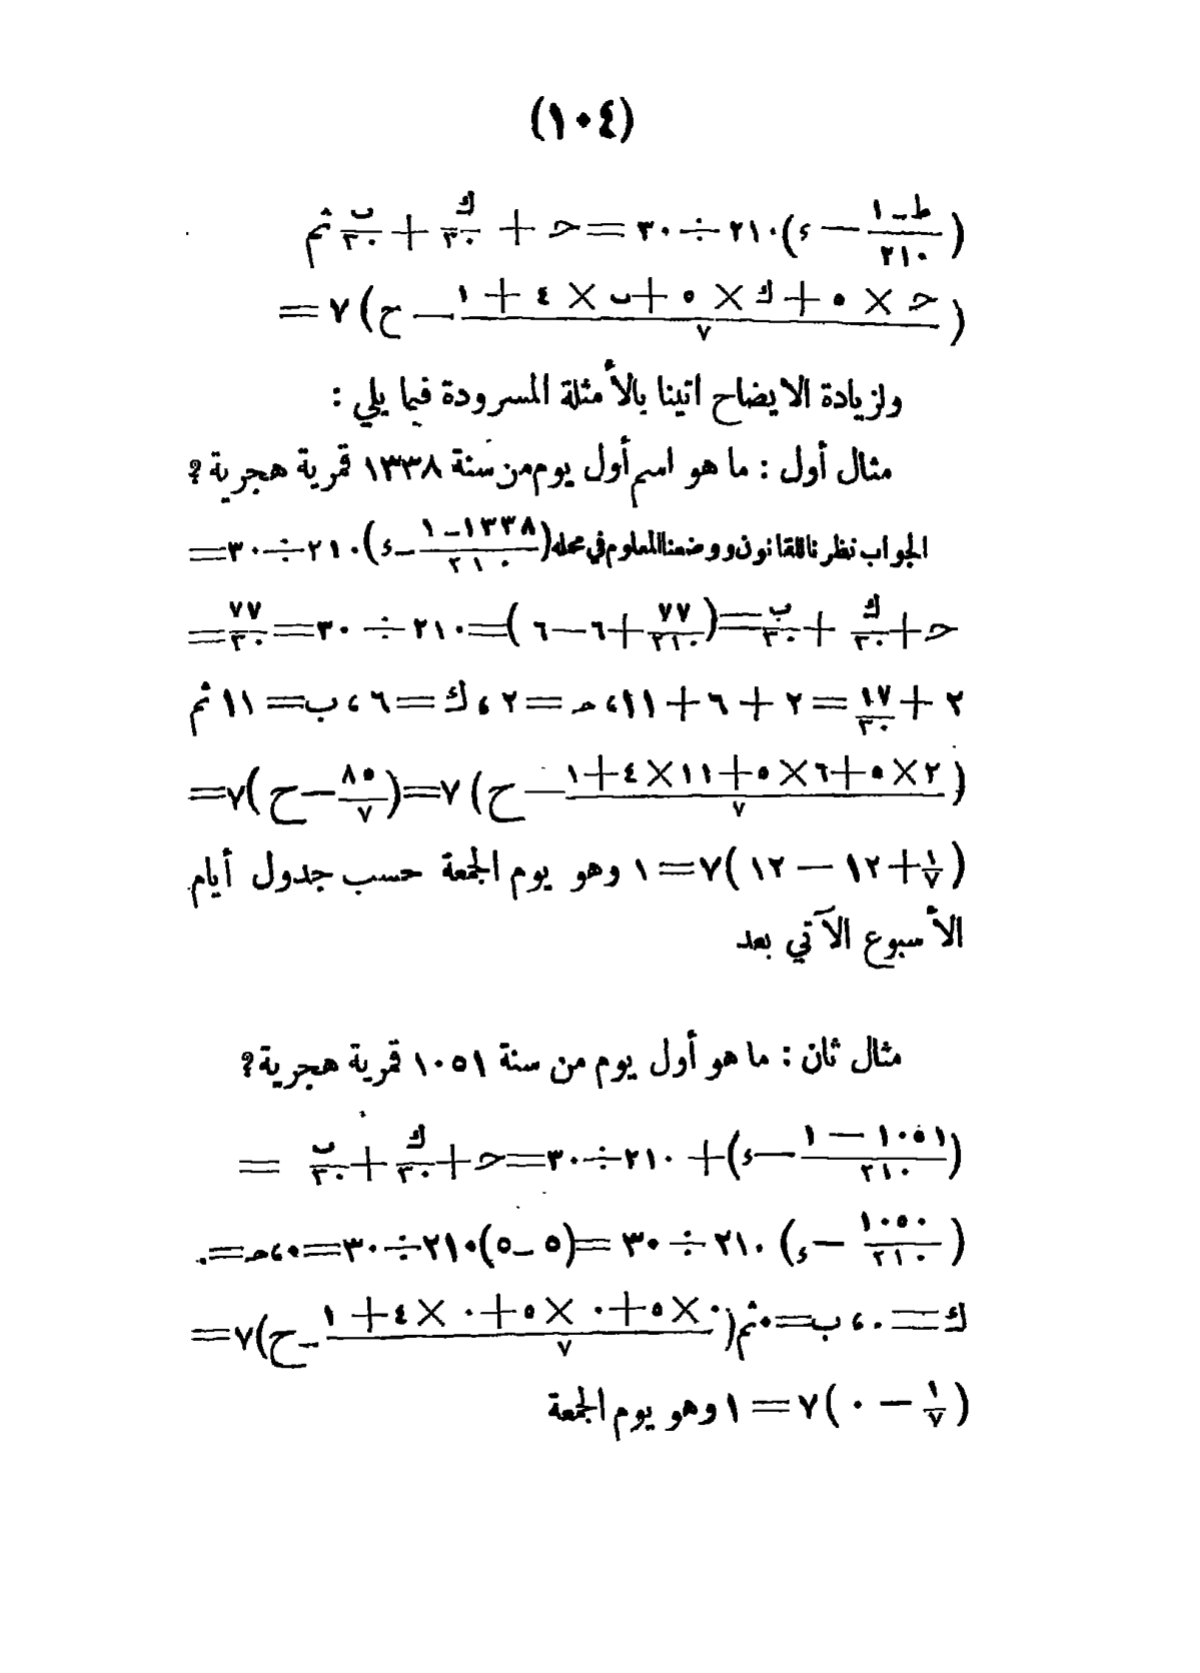 (١٠٤)
(ط-١/٢١٠ - ء)٢١٠ ÷ ٣٠ = حـ + ك/٣٠ + ب/٣٠ ثم
(حـ × ٥ + ك × ٥ + ب × ٤ + ١/٧ - ح)٧ =
ولزيادة الايضاح اتينا بالأمثلة المسرودة فيما يلي :
مثال أول : ما هو اسم أول يوم من سنة ١٣٣٨ قمرية هجرية ؟
الجواب نظرنا للقانون ووضعنا المعلوم في محله (١٣٣٨-١/٢١٠ - ء)٢١٠ ÷ ٣٠ =
حـ + ك/٣٠ + ب/٣٠ = (٧٧/٢١٠ + ٦ - ٦) = ٢١٠ ÷ ٣٠ = ٧٧/٣٠ =
٢ + ١٧/٣٠ = ٢ + ٦ + ١١، حـ = ٢، ك = ٦، ب = ١١ ثم
(٢ × ٥ + ٦ × ٥ + ١١ × ٤ + ١/٧ - ح)٧ = (٨٥/٧ - ح)٧ =
(١/٧ + ١٢ - ١٢)٧ = ١ وهو يوم الجمعة حسب جدول أيام
الأسبوع الآتي بعد
مثال ثان : ما هو أول يوم من سنة ١٠٥١ قمرية هجرية ؟
(١٠٥١ - ١/٢١٠ - ء) + ٢١٠ ÷ ٣٠ = حـ + ك/٣٠ + ب/٣٠ =
(١٠٥٠/٢١٠ - ء) ٢١٠ ÷ ٣٠ = (٥ - ٥)٢١٠ ÷ ٣٠ = ٠، حـ = ٠
ك = ٠، ب = ٠ ثم (٠ × ٥ + ٠ × ٥ + ٠ × ٤ + ١/٧ - ح)٧ =
(١/٧ - ٠)٧ = ١ وهو يوم الجمعة